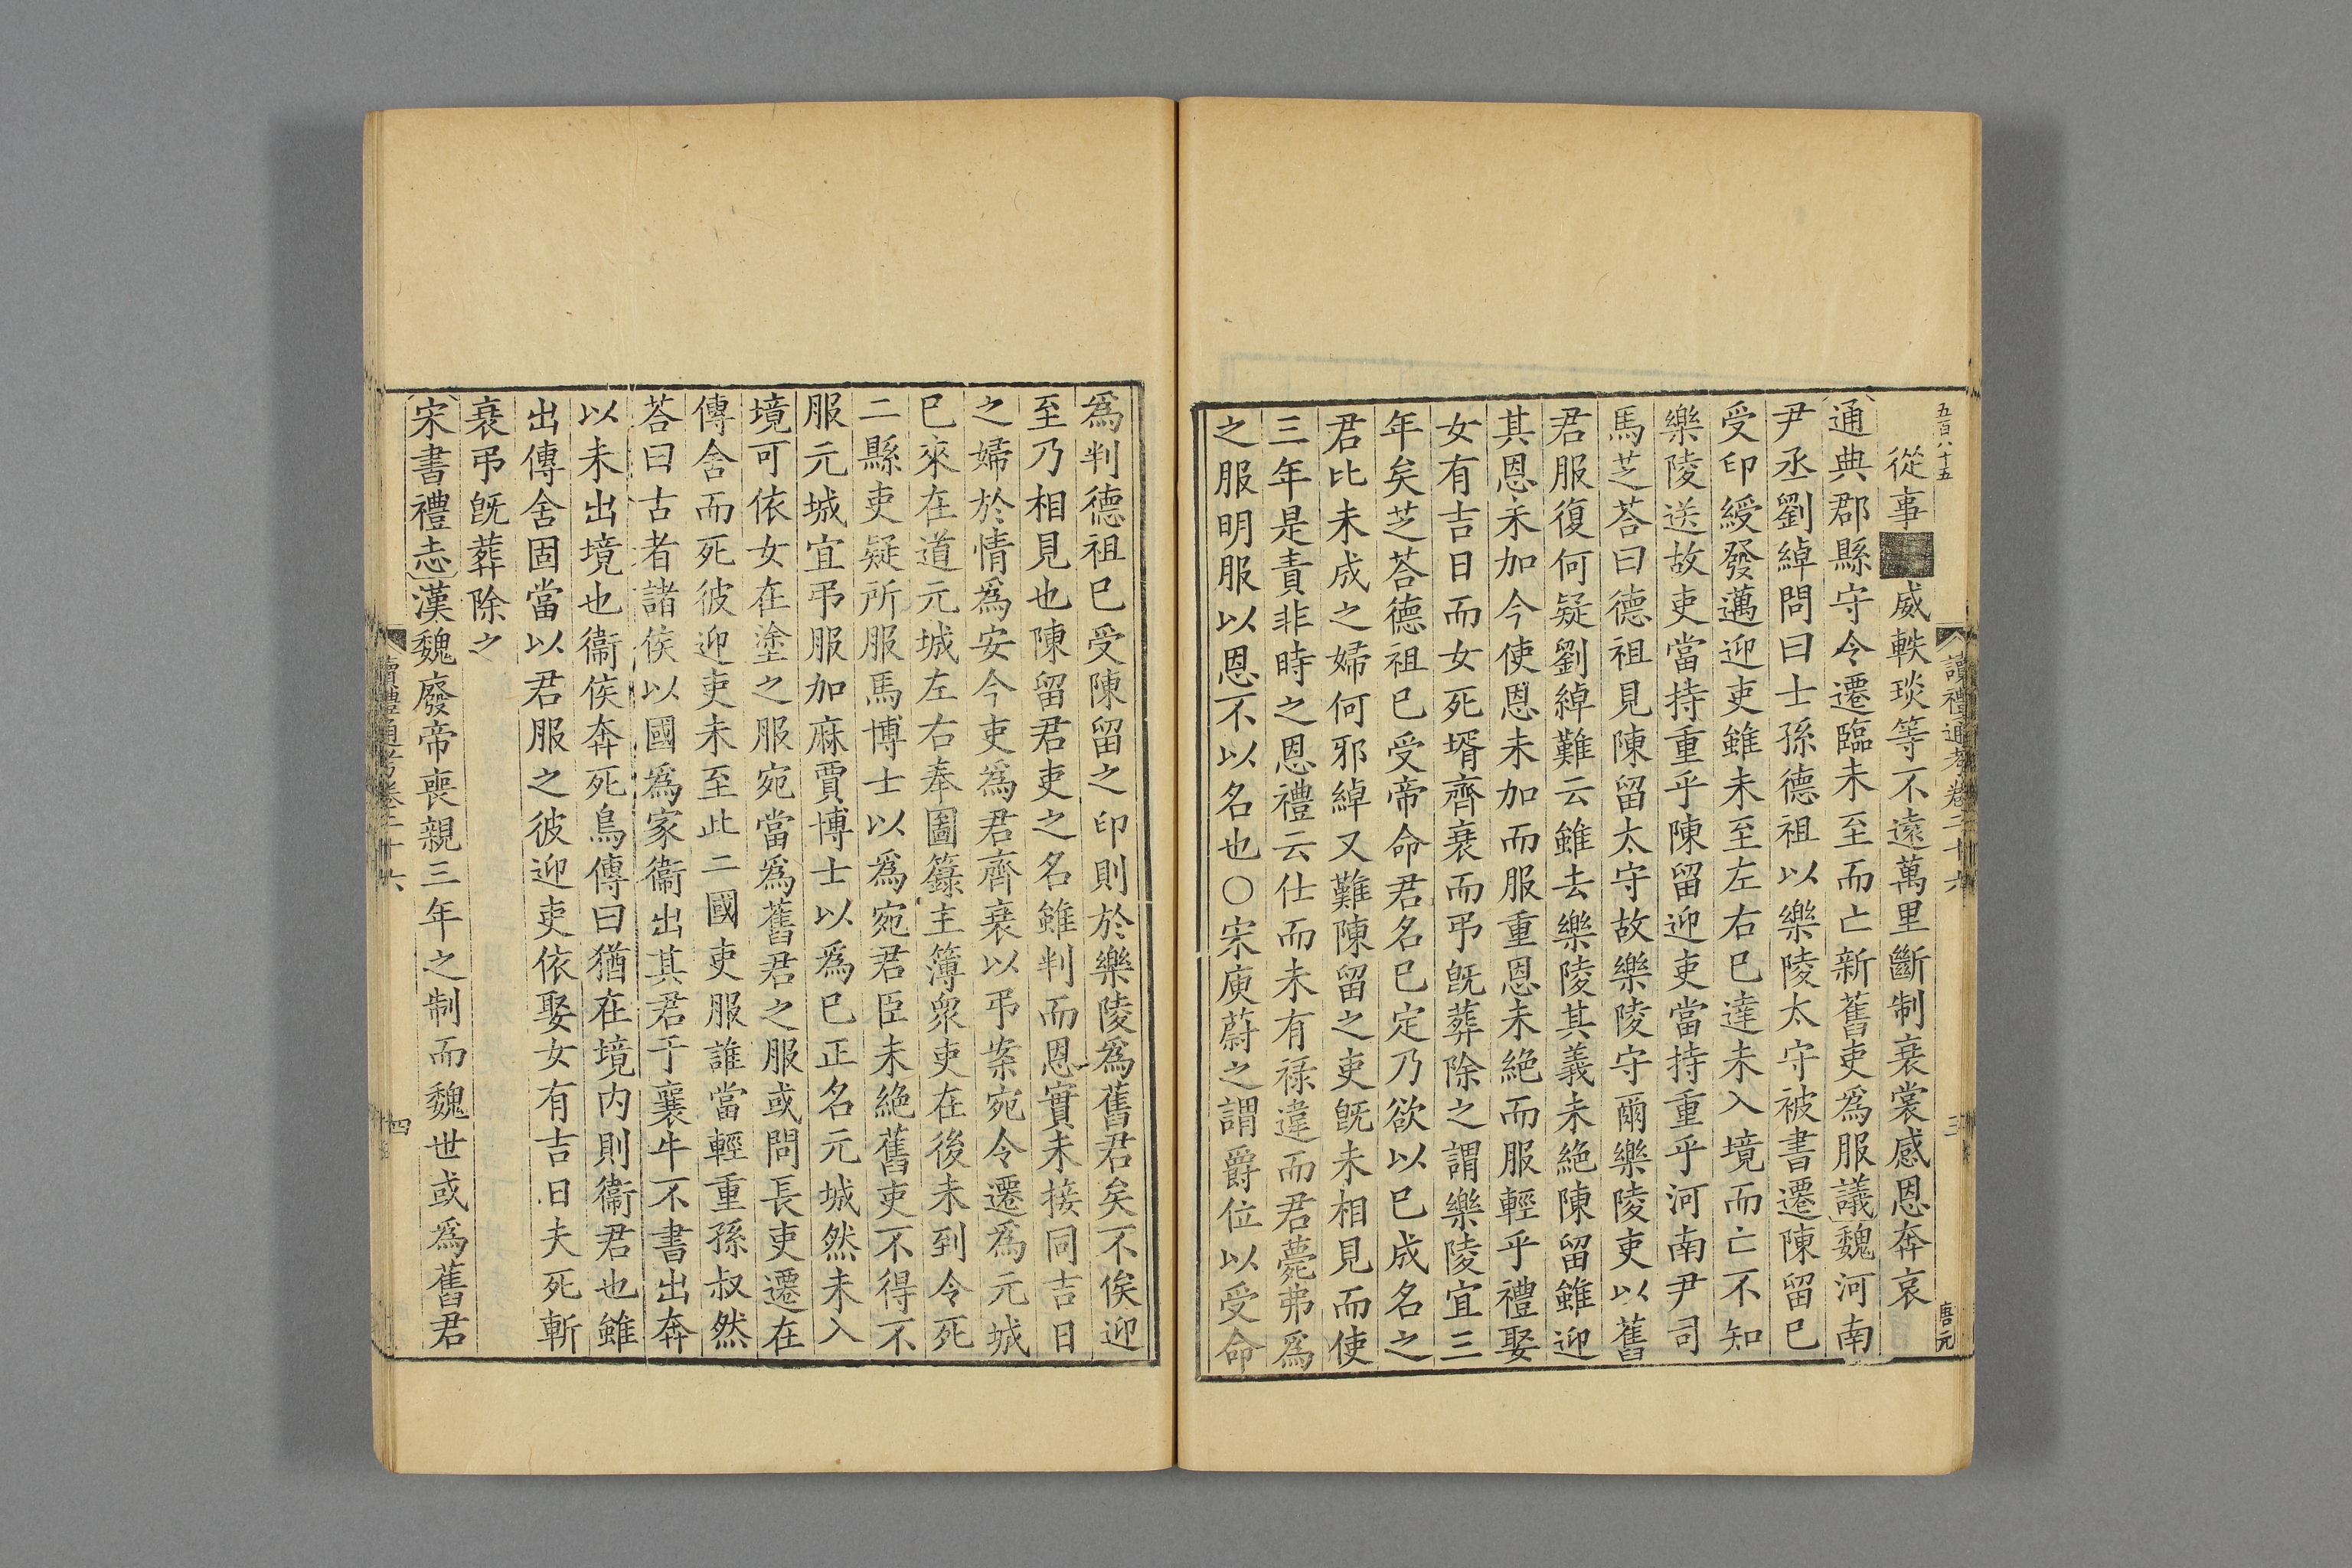 五百八十五
讀禮通考卷二十六
三
唐元
從事
威軼琰等不遠萬里斷制衰裳感恩奔哀
通典郡縣守令遷臨未至而亡新舊吏爲服議魏河南
尹丞劉綽問曰士孫德祖以樂陵太守被書遷陳留已
受印綬發邁迎吏雖未至左右已達未入境而亡不知
樂陵送故吏當持重乎陳留迎吏當持重乎河南尹司
馬芝荅曰德祖見陳留太守故樂陵守爾樂陵吏以舊
君服復何疑劉綽難云雖去樂陵其義未絕陳留雖迎
其恩未加今使恩未加而服重恩未絕而服輕乎禮娶
女有吉日而女死壻齊衰而弔旣葬除之謂樂陵宜三
年矣芝荅德祖已受帝命君名已定乃欲以已成名之
君比未成之婦何邪綽又難陳留之吏旣未相見而使
三年是責非時之恩禮云仕而未有祿違而君薨弗爲
之服明服以恩不以名也○宋庾蔚之謂爵位以受命
爲判德祖已受陳留之印則於樂陵爲舊君矣不俟迎
至乃相見也陳留君吏之名雖判而恩實未接同吉日
之婦於情爲安今吏爲君齊衰以弔案宛令遷爲元城
已來在道元城左右奉圖籙主簿衆吏在後未到令死
二縣吏疑所服馬博士以爲宛君臣未絕舊吏不得不
服元城宜弔服加麻賈博士以爲已正名元城然未入
境可依女在塗之服宛當爲舊君之服或問長吏遷在
傳舍而死彼迎吏未至此二國吏服誰當輕重孫叔然
荅曰古者諸侯以國爲家衞出其君于襄牛不書出奔
以未出境也衞侯奔死鳥傳曰猶在境內則衞君也雖
出傳舍固當以君服之彼迎吏依娶女有吉日夫死斬
衰弔旣葬除之
宋書禮志漢魏廢帝喪親三年之制而魏世或爲舊君
讀禮通考卷二十六
四